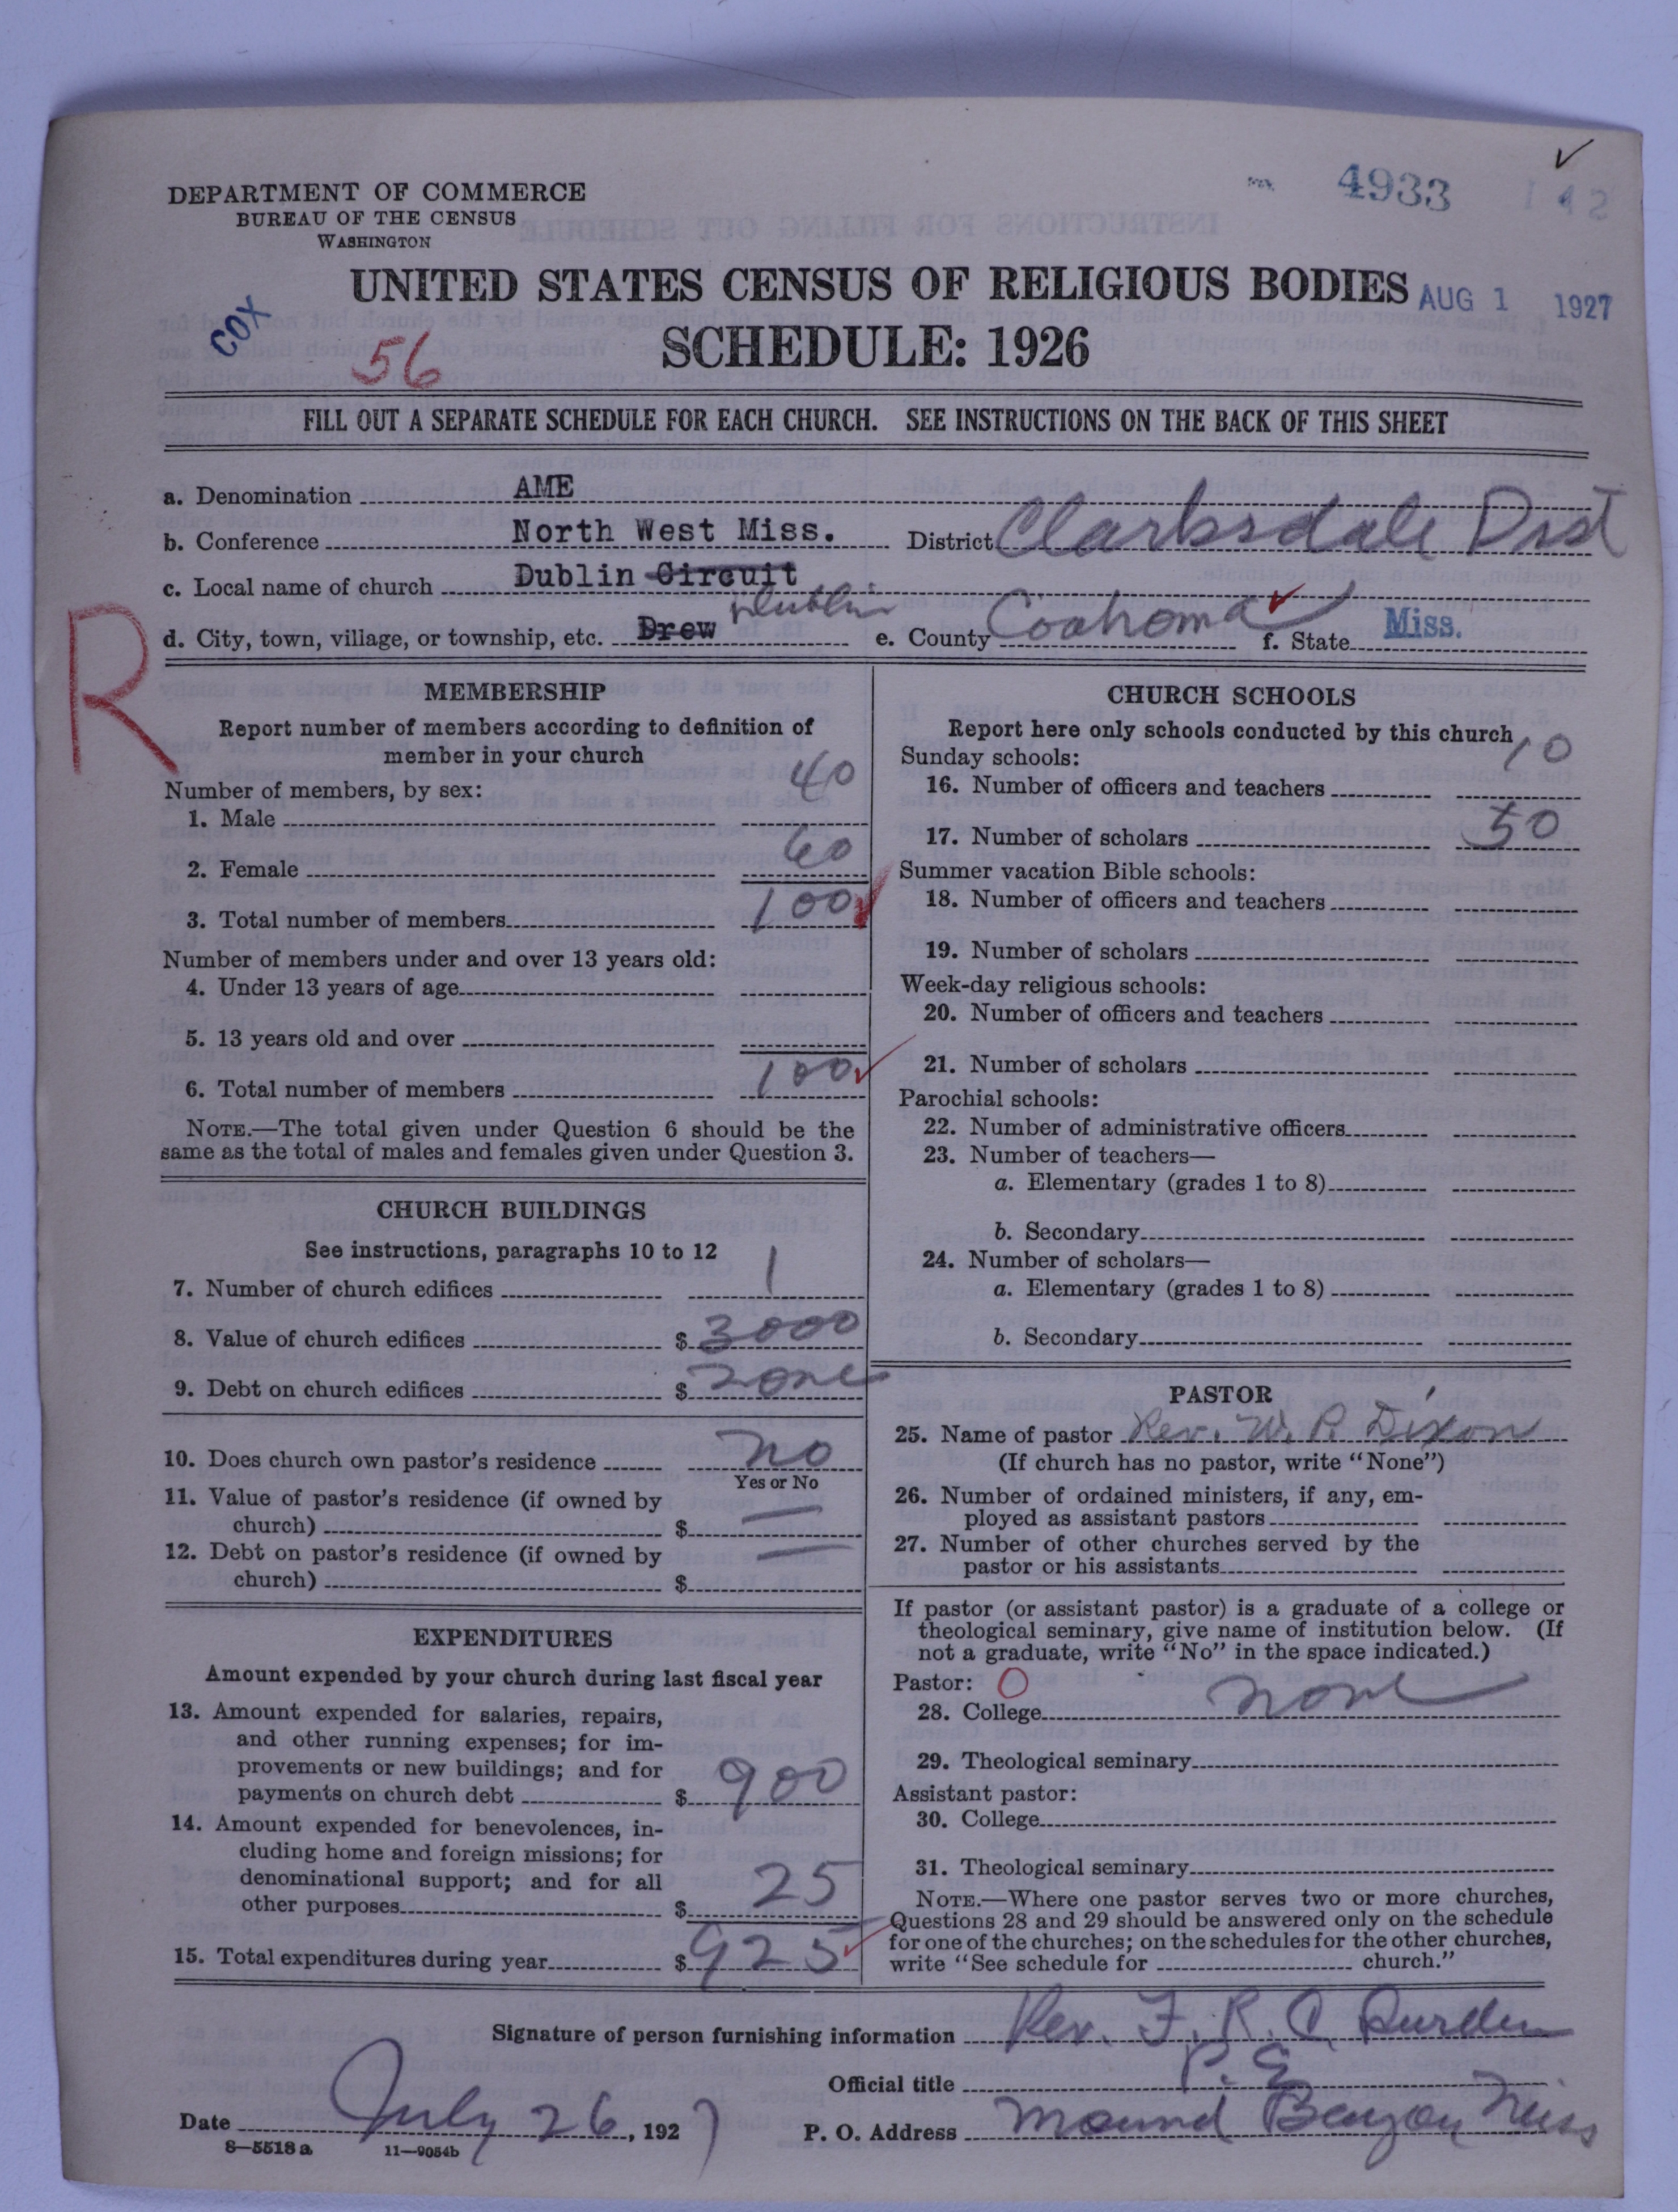 DEPARTMENT OF COMMERCE
BUREAU OF THE CENSUS
WASHINGTON
4933
142
UNITED STATES CENSUS OF RELIGIOUS BODIES
AUG 1 1927
COX
56
SCHEDULE: 1926
FILL OUT A SEPARATE SCHEDULE FOR EACH CHURCH. SEE INSTRUCTIONS ON THE BACK OF THIS SHEET
a. Denomination AME
b. Conference North West Miss. District Clarksdale Dist
c. Local name of church Dublin Circuit
d. City, town, village, or township, etc. Drew Dublin e. County Coahoma f. State Miss.
R
MEMBERSHIP
Report number of members according to definition of
member in your church
Number of members, by sex:
1. Male 40
2. Female 60
3. Total number of members 100
Number of members under and over 13 years old:
4. Under 13 years of age
5. 13 years old and over
6. Total number of members 100
NOTE.—The total given under Question 6 should be the
same as the total of males and females given under Question 3.
CHURCH BUILDINGS
See instructions, paragraphs 10 to 12
7. Number of church edifices 1
8. Value of church edifices $ 3000
9. Debt on church edifices $ none
10. Does church own pastor's residence no
Yes or No
11. Value of pastor's residence (if owned by
church) $ —
12. Debt on pastor's residence (if owned by
church) $ —
EXPENDITURES
Amount expended by your church during last fiscal year
13. Amount expended for salaries, repairs,
and other running expenses; for im-
provements or new buildings; and for
payments on church debt $ 900
14. Amount expended for benevolences, in-
cluding home and foreign missions; for
denominational support; and for all
other purposes $ 25
15. Total expenditures during year $ 925
CHURCH SCHOOLS
Report here only schools conducted by this church
Sunday schools:
16. Number of officers and teachers 10
17. Number of scholars 50
Summer vacation Bible schools:
18. Number of officers and teachers
19. Number of scholars
Week-day religious schools:
20. Number of officers and teachers
21. Number of scholars
Parochial schools:
22. Number of administrative officers
23. Number of teachers—
a. Elementary (grades 1 to 8)
b. Secondary
24. Number of scholars—
a. Elementary (grades 1 to 8)
b. Secondary
PASTOR
25. Name of pastor Rev. W. P. Dixon
(If church has no pastor, write "None")
26. Number of ordained ministers, if any, em-
ployed as assistant pastors
27. Number of other churches served by the
pastor or his assistants
If pastor (or assistant pastor) is a graduate of a college or
theological seminary, give name of institution below. (If
not a graduate, write "No" in the space indicated.)
Pastor: O
28. College none
29. Theological seminary
Assistant pastor:
30. College
31. Theological seminary
NOTE.—Where one pastor serves two or more churches,
Questions 28 and 29 should be answered only on the schedule
for one of the churches; on the schedules for the other churches,
write "See schedule for church."
Signature of person furnishing information Rev. F. R. C. Durden
Official title P. E.
Date July 26, 1927 P. O. Address Mound Bayou Miss
8—5518 a 11—9054b